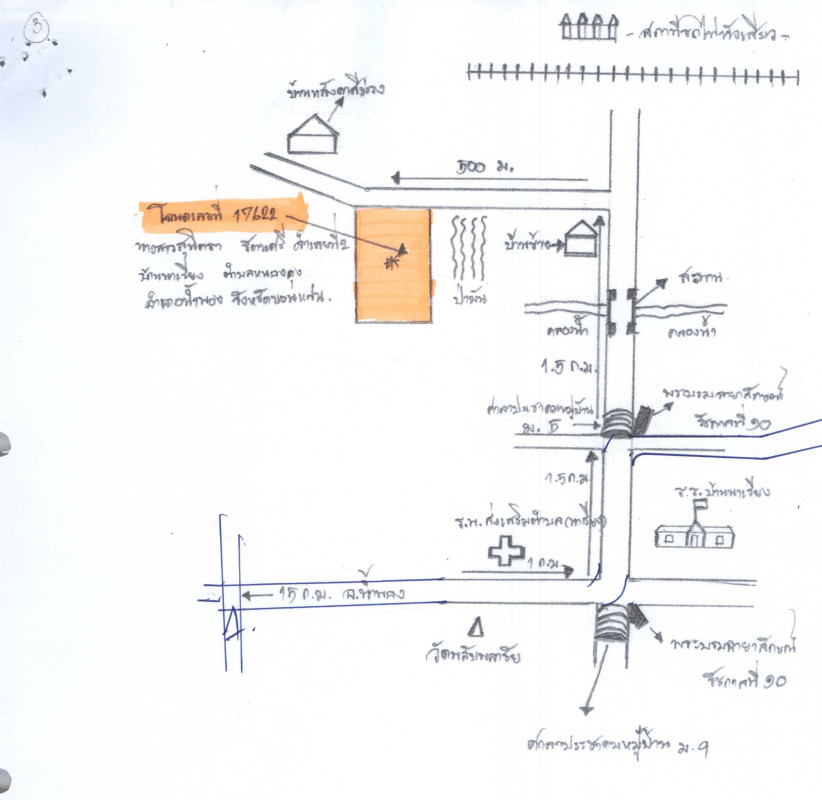 3
- สถานีรถไฟห้วยเสียว -
บ้านหลังคาสีแดง
500 ม.
โฉนดเลขที่ 17622
นางสาวสุพัตรา จำเลยที่2
บ้านนาเรียง ตำบลหนองกุง
อำเภอน้ำพอง จังหวัดขอนแก่น.
ป่ามัน
บ้านช้าง
สะพาน
คลองน้ำ
คลองน้ำ
1.5 ก.ม.
ศาลาประชาคมหมู่บ้าน
ม. 5
พระบรมฉายาลักษณ์
รัชกาลที่ 10
1.5 ก.ม.
ร.ร. บ้านนาเรียง
ร.พ. ส่งเสริมตำบล(นาเรียง)
1 ก.ม.
15 ก.ม. อ.น้ำพอง
พระบรมฉายาลักษณ์
รัชกาลที่ 10
ศาลาประชาคมหมู่บ้าน ม.9